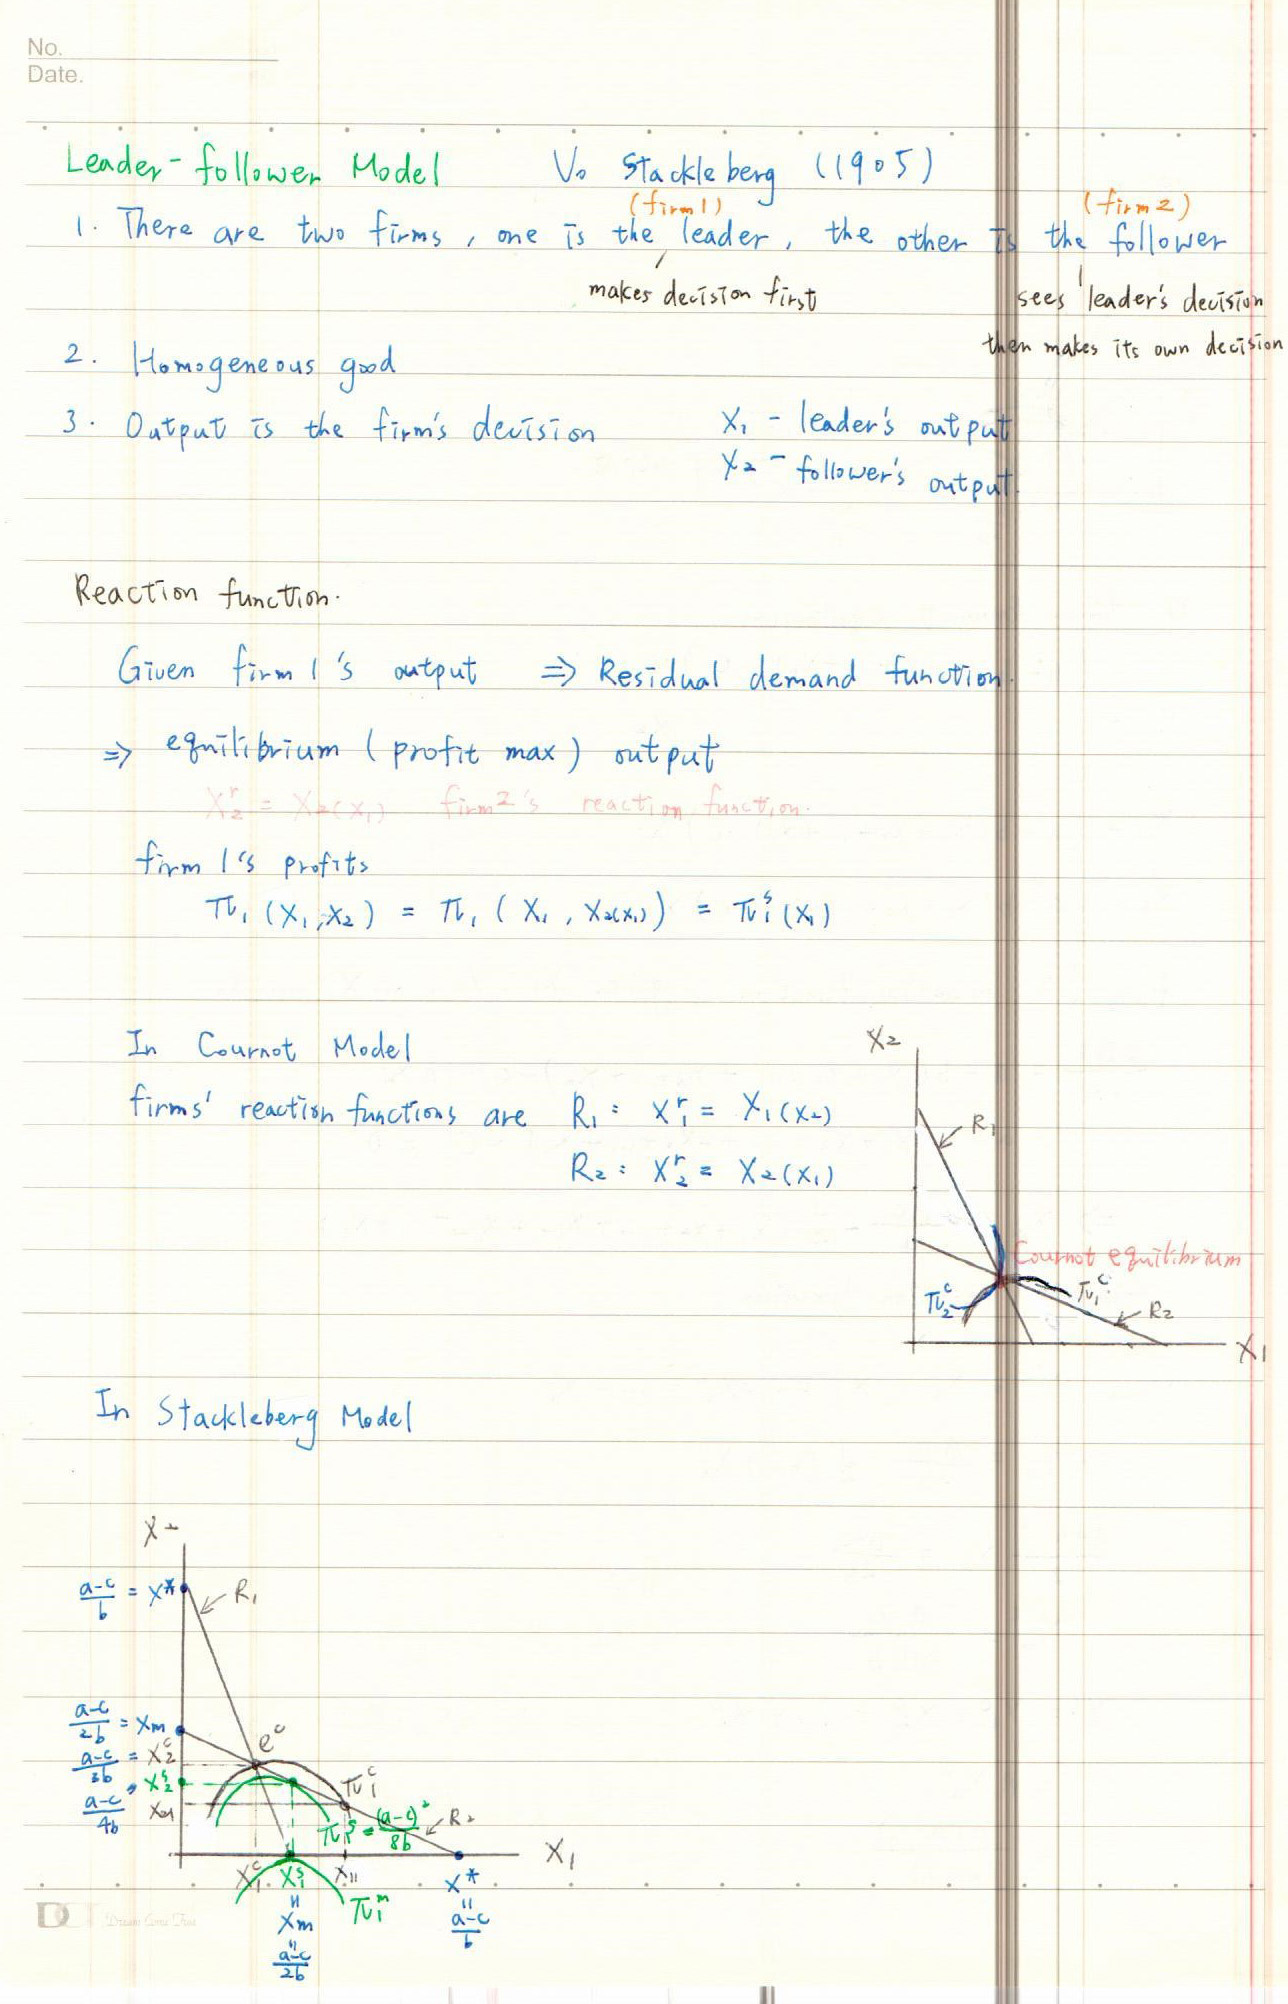 No.
Date.
Leader-follower Model Vo Stackleberg (1905)
(firm 1) (firm 2)
1. There are two firms, one is the leader, the other is the follower
makes decision first sees leader's decision
then makes its own decision
2. Homogeneous good
3. Output is the firm's decision X₁ - leader's output
X₂ - follower's output
Reaction function.
Given firm 1's output ⇒ Residual demand function.
⇒ equilibrium (profit max) output
X₂ʳ = X₂(X₁) firm 2's reaction function.
firm 1's profits
π₁ (X₁, X₂) = π₁ (X₁, X₂(X₁)) = π₁ˢ (X₁)
In Cournot Model
X₂
firms' reaction functions are R₁: X₁ʳ = X₁(X₂)
R₁
R₂: X₂ʳ = X₂(X₁)
Cournot equilibrium
π₂ᶜ π₁ᶜ R₂
X₁
In Stackleberg Model
X₂
a-c/b = X* R₁
a-c/2b = Xm
eᶜ
a-c/3b = X₂ᶜ
X₂ˢ π₁ᶜ
a-c/4b X₂₁
π₁ˢ = (a-c)²/8b R₂
X₁
X₁ᶜ X₁ˢ X₁₁ X*
π₁ᵐ
= Xm = a-c/2b
= a-c/b
Dream Come True